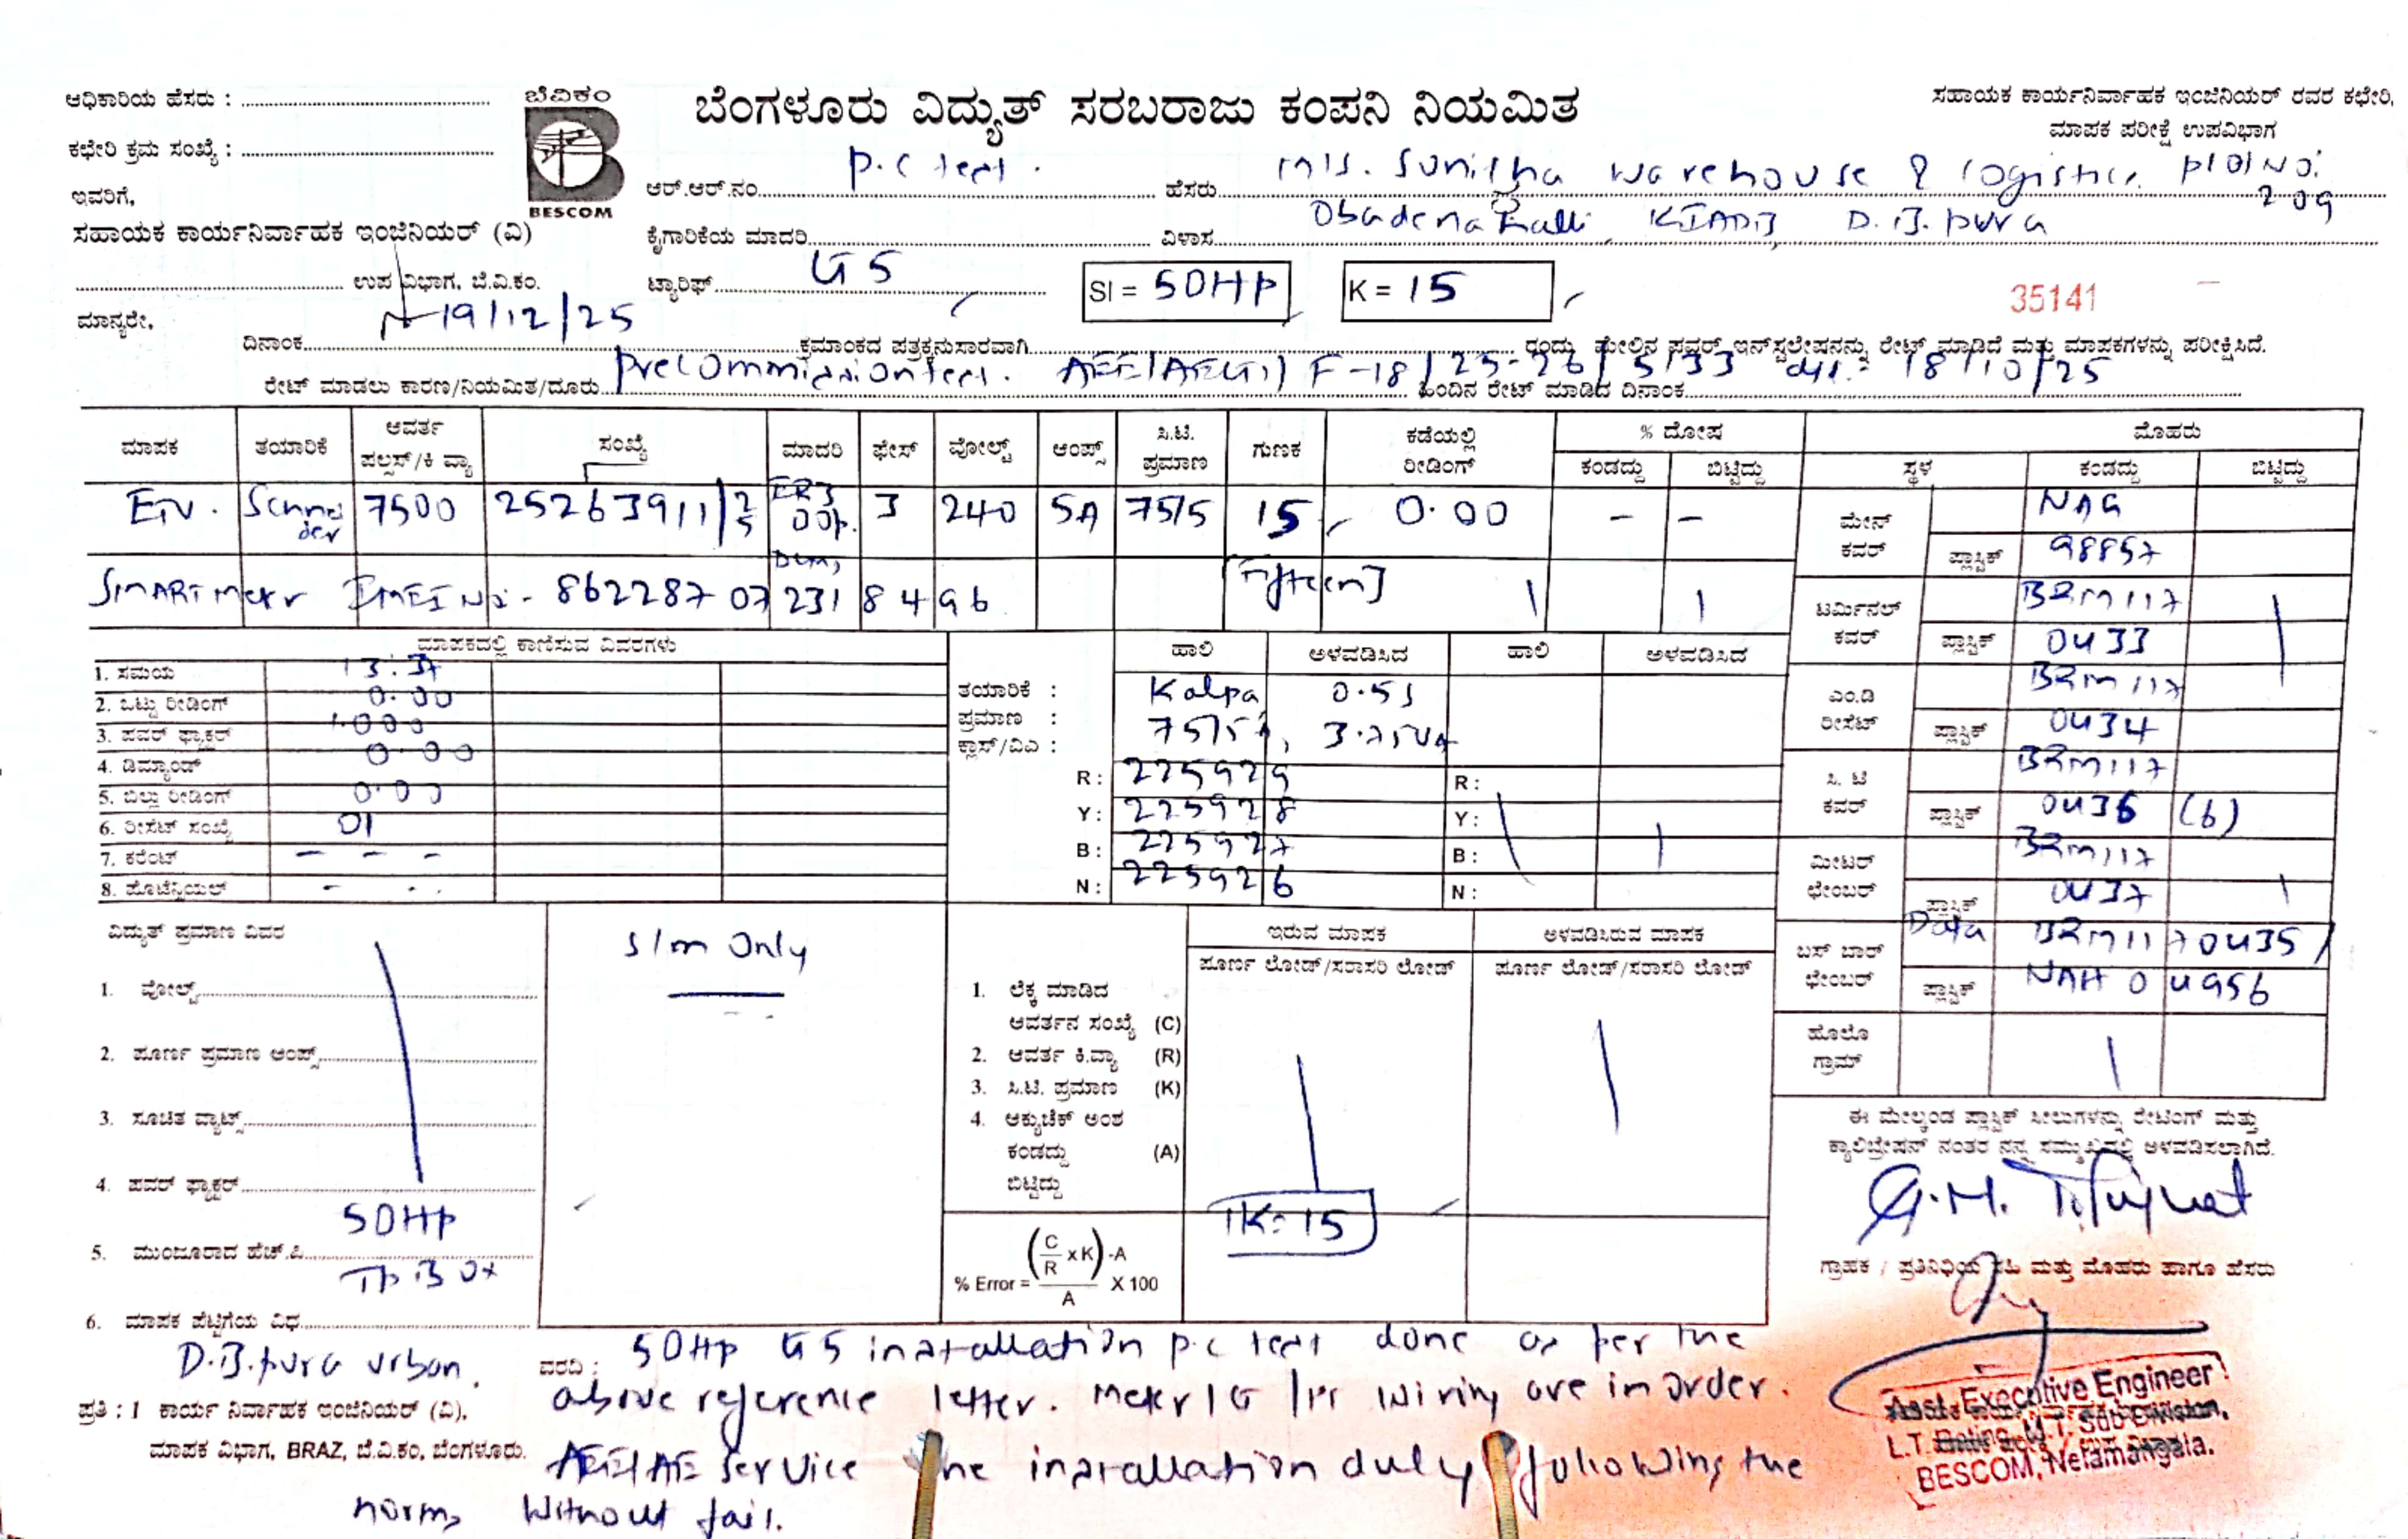 ಬೆವಿಕಂ
BESCOM
ಬೆಂಗಳೂರು ವಿದ್ಯುತ್ ಸರಬರಾಜು ಕಂಪನಿ ನಿಯಮಿತ
ಅಧಿಕಾರಿಯ ಹೆಸರು :
ಕಛೇರಿ ಕ್ರಮ ಸಂಖ್ಯೆ :
ಇವರಿಗೆ,
ಸಹಾಯಕ ಕಾರ್ಯನಿರ್ವಾಹಕ ಇಂಜಿನಿಯರ್ (ವಿ)
ಉಪ ವಿಭಾಗ, ಬೆ.ವಿ.ಕಂ.
ಮಾನ್ಯರೇ,
ಸಹಾಯಕ ಕಾರ್ಯನಿರ್ವಾಹಕ ಇಂಜಿನಿಯರ್ ರವರ ಕಛೇರಿ,
ಮಾಪಕ ಪರೀಕ್ಷೆ ಉಪವಿಭಾಗ
ಆರ್.ಆರ್.ನಂ. P.C test. ಹೆಸರು M/S. Sunitha warehouse & logistics plot No. 209
ಕೈಗಾರಿಕೆಯ ಮಾದರಿ ವಿಳಾಸ Obadenahalli, KIADB, D.B. pura
ಟ್ಯಾರಿಫ್ LT 5 SI = 50HP K = 15
35141
ದಿನಾಂಕ 19/12/25 ಕ್ರಮಾಂಕದ ಪತ್ರಕ್ಕನುಸಾರವಾಗಿ ರಂದು ಮೇಲಿನ ಪವರ್ ಇನ್‌ಸ್ಟಲೇಷನನ್ನು ರೇಟ್ ಮಾಡಿದೆ ಮತ್ತು ಮಾಪಕಗಳನ್ನು ಪರೀಕ್ಷಿಸಿದೆ.
ರೇಟ್ ಮಾಡಲು ಕಾರಣ/ನಿಯಮಿತ/ದೂರು Precommission test. F-18/25-26/5133 dt: 18/10/25 ಹಿಂದಿನ ರೇಟ್ ಮಾಡಿದ ದಿನಾಂಕ
ಮಾಪಕ ತಯಾರಿಕೆ ಆವರ್ತ ಪಲ್ಸಸ್/ಕಿ ವ್ಯಾ ಸಂಖ್ಯೆ ಮಾದರಿ ಫೇಸ್ ವೋಲ್ಟ್ ಆಂಪ್ಸ್ ಸಿ.ಟಿ. ಪ್ರಮಾಣ ಗುಣಕ ಕಡೆಯಲ್ಲಿ ರೀಡಿಂಗ್ % ದೋಷ ಕಂಡದ್ದು ಬಿಟ್ಟಿದ್ದು
Schneider 7500 25263911/25 3 240 5A 75/5 15 0.00 - -
SMART Meter IMEI No:- 862287072318496 [Fifteen]
ಮೊಹರು
ಸ್ಥಳ ಕಂಡದ್ದು ಬಿಟ್ಟಿದ್ದು
ಮೇನ್ ಕವರ್ NAG
ಪ್ಲಾಸ್ಟಿಕ್ 98857
ಟರ್ಮಿನಲ್ ಕವರ್ BRM117
ಪ್ಲಾಸ್ಟಿಕ್ 0433
ಎಂ.ಡಿ ರೀಸೆಟ್ BRM117
ಪ್ಲಾಸ್ಟಿಕ್ 0434
ಸಿ. ಟಿ ಕವರ್ BRM117
ಪ್ಲಾಸ್ಟಿಕ್ 0436 (6)
ಮೀಟರ್ ಛೇಂಬರ್ BRM117
ಪ್ಲಾಸ್ಟಿಕ್ 0437
ಬಸ್ ಬಾರ್ ಛೇಂಬರ್ Data BRM117 0435
ಪ್ಲಾಸ್ಟಿಕ್ NAH 04956
ಹೊಲೊ ಗ್ರಾಮ್
ಮಾಪಕದಲ್ಲಿ ಕಾಣಿಸುವ ವಿವರಗಳು
1. ಸಮಯ 13:37
2. ಒಟ್ಟು ರೀಡಿಂಗ್ 0.00
3. ಪವರ್ ಫ್ಯಾಕ್ಟರ್ 1.000
4. ಡಿಮ್ಯಾಂಡ್ 0.00
5. ಬಿಲ್ಲು ರೀಡಿಂಗ್ 0.00
6. ರೀಸೆಟ್ ಸಂಖ್ಯೆ 01
7. ಕರೆಂಟ್ - - -
8. ಪೊಟೆನ್ಷಿಯಲ್
ಹಾಲಿ ಅಳವಡಿಸಿದ ಹಾಲಿ ಅಳವಡಿಸಿದ
ತಯಾರಿಕೆ : Kalpa 0.5s
ಪ್ರಮಾಣ : 75/5A, 3.75VA
ಕ್ಲಾಸ್/ವಿಎ :
R: 225929 R:
Y: 225928 Y:
B: 225927 B:
N: 225926 N:
ವಿದ್ಯುತ್ ಪ್ರಮಾಣ ವಿವರ
1. ವೋಲ್ಟ್
2. ಪೂರ್ಣ ಪ್ರಮಾಣ ಆಂಪ್ಸ್
3. ಸೂಚಿತ ವ್ಯಾಟ್ಸ್
4. ಪವರ್ ಫ್ಯಾಕ್ಟರ್
5. ಮುಂಜೂರಾದ ಹೆಚ್.ಪಿ 50HP
6. ಮಾಪಕ ಪೆಟ್ಟಿಗೆಯ ವಿಧ TP Box
S/m Only
ಇರುವ ಮಾಪಕ ಅಳವಡಿಸಿರುವ ಮಾಪಕ
ಪೂರ್ಣ ಲೋಡ್/ಸರಾಸರಿ ಲೋಡ್ ಪೂರ್ಣ ಲೋಡ್/ಸರಾಸರಿ ಲೋಡ್
1. ಲೆಕ್ಕ ಮಾಡಿದ ಆವರ್ತನ ಸಂಖ್ಯೆ (C)
2. ಆವರ್ತ ಕಿ.ವ್ಯಾ (R)
3. ಸಿ.ಟಿ. ಪ್ರಮಾಣ (K)
4. ಆಕ್ಯುಚೆಕ್ ಅಂಶ
ಕಂಡದ್ದು (A)
ಬಿಟ್ಟಿದ್ದು
K=15
% Error = (C/R x K) -A / A X 100
ಈ ಮೇಲ್ಕಂಡ ಪ್ಲಾಸ್ಟಿಕ್ ಸೀಲುಗಳನ್ನು ರೇಟಿಂಗ್ ಮತ್ತು
ಕ್ಯಾಲಿಬ್ರೇಷನ್ ನಂತರ ನನ್ನ ಸಮ್ಮುಖದಲ್ಲಿ ಅಳವಡಿಸಲಾಗಿದೆ.
ಗ್ರಾಹಕ / ಪ್ರತಿನಿಧಿಯ ಸಹಿ ಮತ್ತು ಮೊಹರು ಹಾಗೂ ಹೆಸರು
D.B.pura urban.
ಪ್ರತಿ : 1 ಕಾರ್ಯ ನಿರ್ವಾಹಕ ಇಂಜಿನಿಯರ್ (ವಿ),
ಮಾಪಕ ವಿಭಾಗ, BRAZ, ಬೆ.ವಿ.ಕಂ, ಬೆಂಗಳೂರು.
ವರದಿ : 50HP LT 5 installation p.c test done as per the
above reference letter. Meter, CT / PT wiring are in order.
AEE/AE service the installation duly following the
norms without fail.
Asst. Executive Engineer
L.T. Rating, M.T. Sub Division,
BESCOM, Nelamangala.